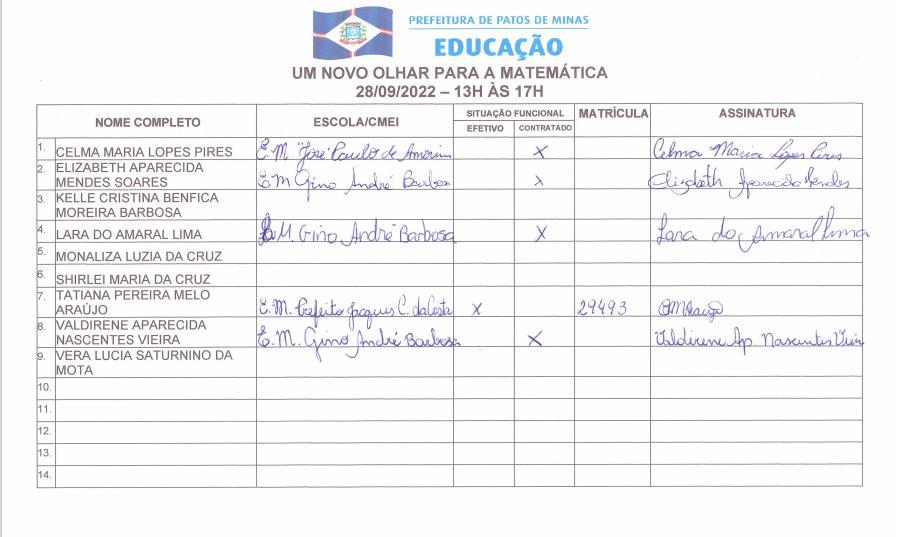 PREFEITURA DE PATOS DE MINAS
EDUCAÇÃO
UM NOVO OLHAR PARA A MATEMÁTICA
28/09/2022 – 13H ÀS 17H
NOME COMPLETO ESCOLA/CMEI SITUAÇÃO FUNCIONAL MATRÍCULA ASSINATURA
EFETIVO CONTRATADO
1. CELMA MARIA LOPES PIRES E.M. "José Paulo de Amorim X Celma Maria Lopes Pires
2. ELIZABETH APARECIDA
MENDES SOARES E.M Gino André Barbosa X Elizabeth Aparecida Mendes
3. KELLE CRISTINA BENFICA
MOREIRA BARBOSA
4. LARA DO AMARAL LIMA E.M. Gino André Barbosa X Lara do Amaral Lima
5. MONALIZA LUZIA DA CRUZ
6. SHIRLEI MARIA DA CRUZ
7. TATIANA PEREIRA MELO
ARAÚJO E.M. Prefeito Jaques C. da Costa X 29493
8. VALDIRENE APARECIDA
NASCENTES VIEIRA E.M. Gino André Barbosa X Valdirene Ap. Nascentes Vieira
9. VERA LUCIA SATURNINO DA
MOTA
10.
11.
12.
13.
14.